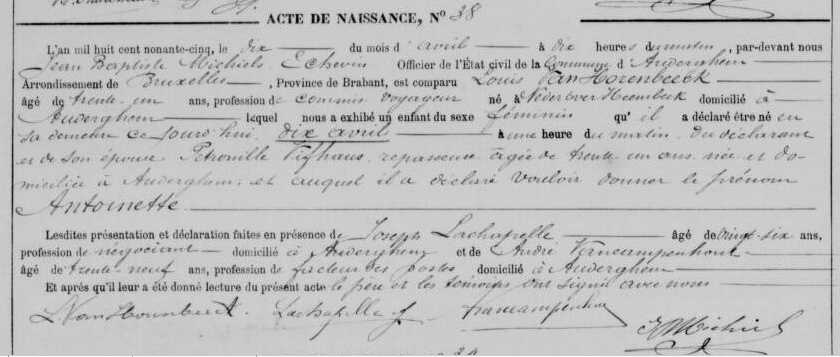 ACTE DE NAISSANCE, N° 38
L'an mil huit cent nonante-cinq, le dix du mois d'avril à dix heures du matin, par-devant nous
Jean Baptiste Michiels Echevin Officier de l'État civil de la Commune d'Auderghem
Arrondissement de Bruxelles, Province de Brabant, est comparu Louis Van Horenbeeck
âgé de trente un ans, profession de commis voyageur né à Nederover Heembeek domicilié à
Auderghem lequel nous a exhibé un enfant du sexe féminin qu'il a déclaré être né en
sa demeure ce jourd'hui, dix avril à une heure du matin, du déclarant
et de son épouse Petronille Vijfhaus, repasseuse âgée de trente un ans née et do-
miciliée à Auderghem, et auquel il a déclaré vouloir donner le prénom
Antoinette
Lesdites présentation et déclaration faites en présence de Joseph Lachapelle âgé de vingt-six ans,
profession de négociant domicilié à Auderghem et de André Vancampenhout
âgé de trente-neuf ans, profession de facteur des postes domicilié à Auderghem
Et après qu'il leur a été donné lecture du présent acte le père et les témoins ont signé avec nous
Lachapelle J Vancampenhout
JB Michiels